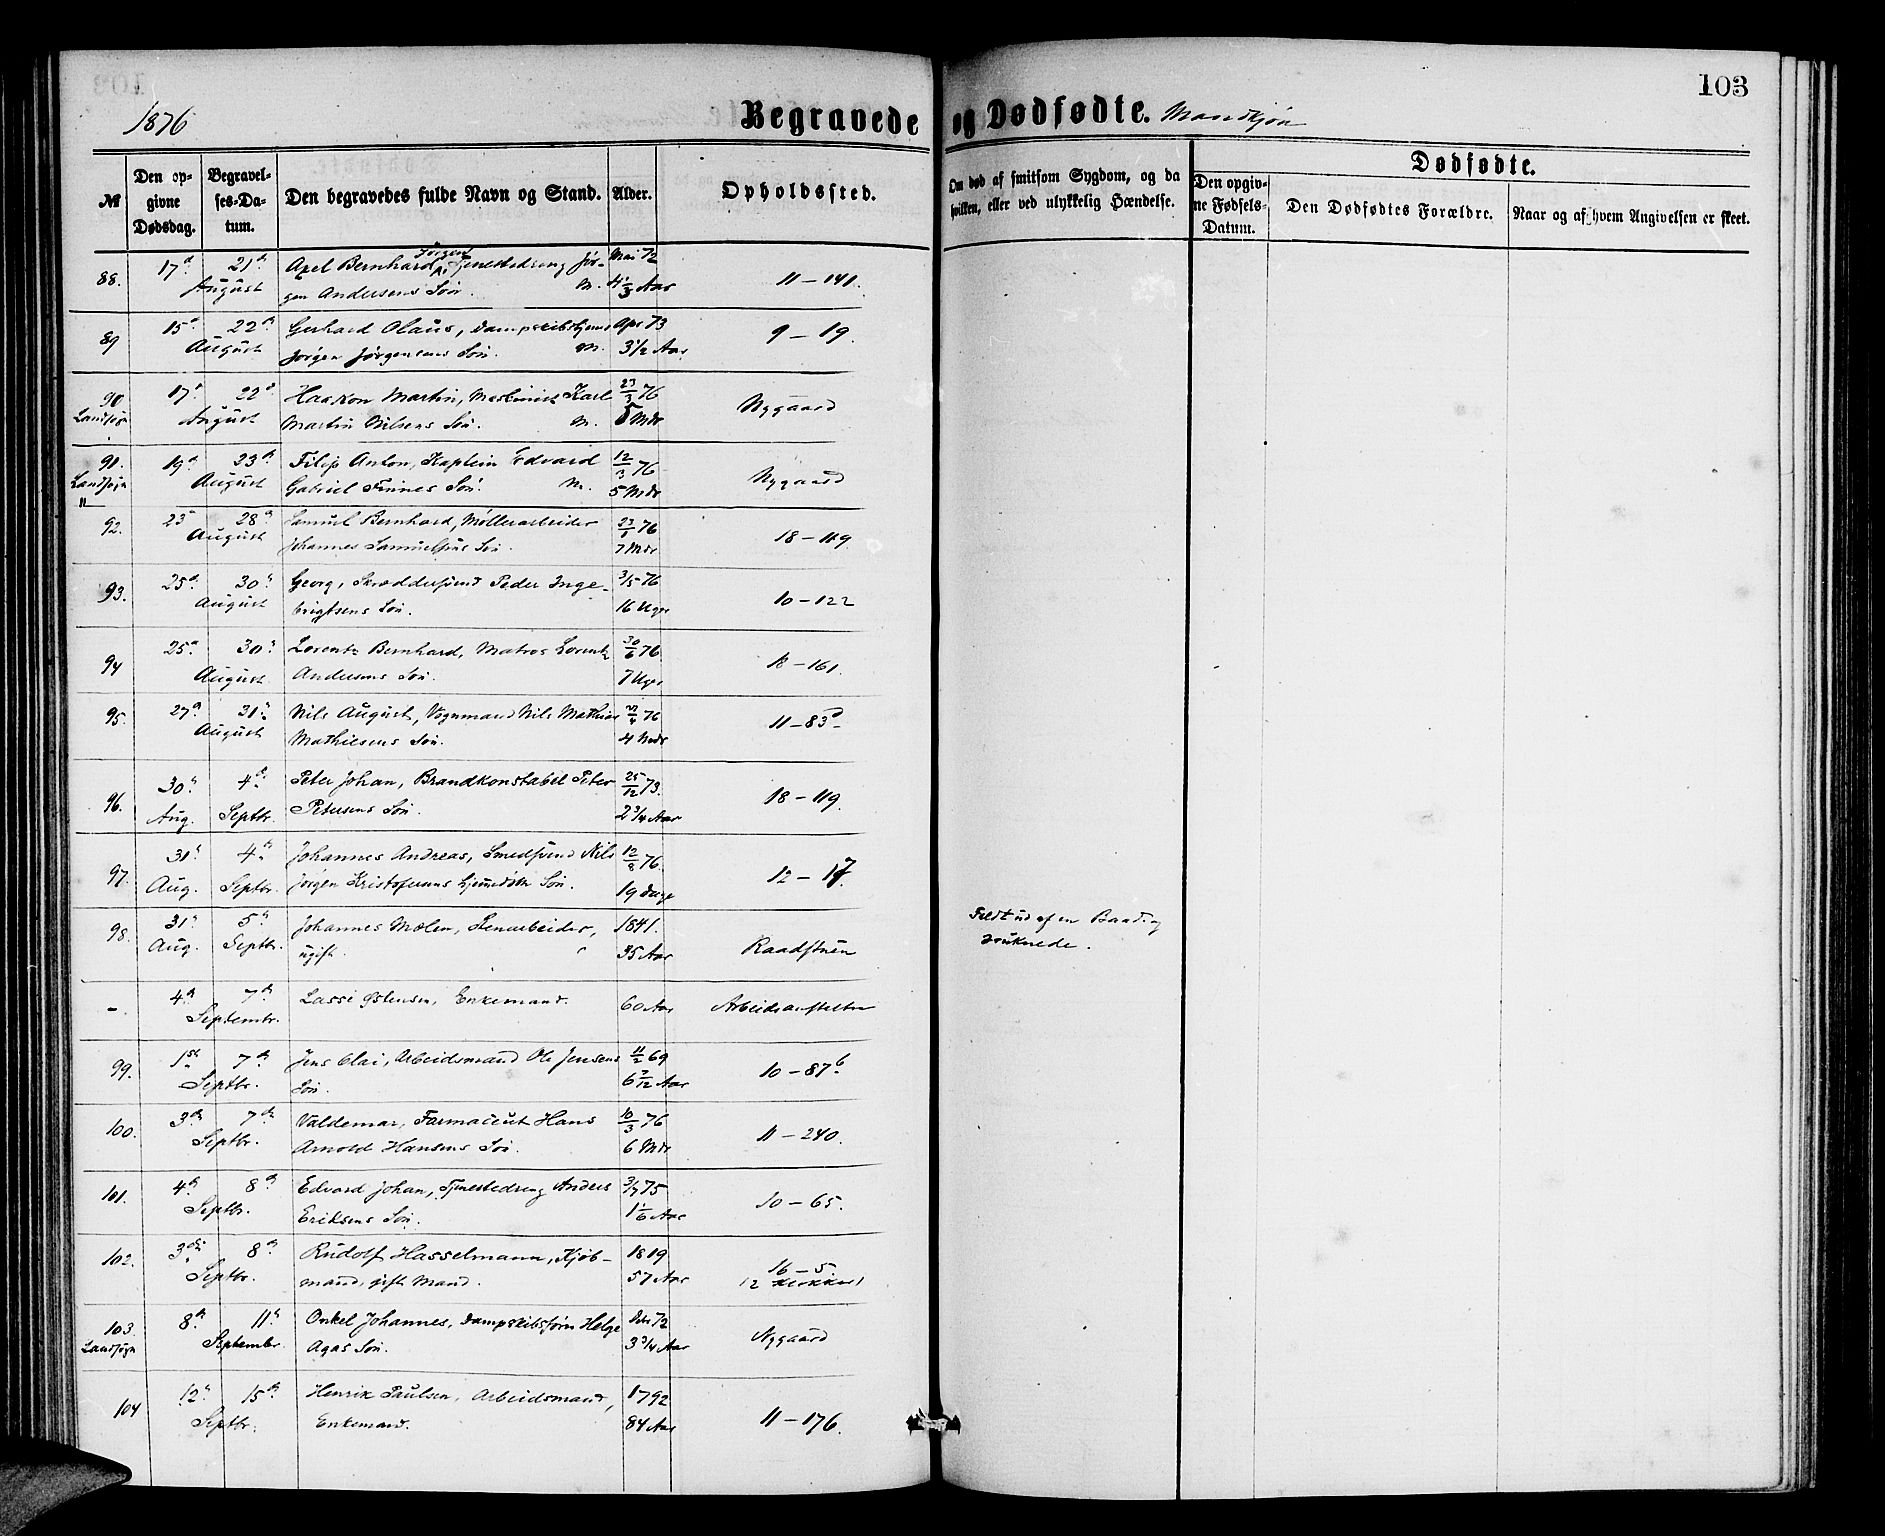 103
1876
Begravede og Dødfødte. Mandkjøn
№
Den opgivne Dødsdag.
Begravelses-Datum.
Den begravedes fulde Navn og Stand.
Alder.
Opholdssted.
Om død af smitsom Sygdom, og da
hvilken, eller ved ulykkelig Hændelse.
Dødfødte.
Den opgivne Fødsels-Datum.
Den Dødfødtes Forældre.
Naar og af hvem Angivelsen er skeet.
88. 17d 21d Axel Bernhard, Tjenestedreng Jør- Mai 72
Jørgen
August gen Andersens Søn. M. 4 1/3 Aar 11 – 141.
89 15d 22d Gerhard Olaus, Dampskibstjener Apr 73 9 – 19.
August Jørgen Jørgensens Søn. M. 3 1/2 Aar
90 17d 22d Haakon Martin, Maskinist Karl 23/3 76 Nygaard
Landsogn August Martin Nilsens Søn. M. 5 Mdr
91. 19d 23d Filip Anton, Kaptein Edvard 12/3 76 Nygaard
Landsogn August Gabriel Finnes Søn. M. 5 Mdr
92. 23d 28d Samuel Bernhard, Møllerarbeider 23/1 76 18 – 119
August Johannes Samuelsens Søn. 7 Mdr
93. 25d 30d Georg, Skræddersvend Peder Inge- 3/5 76 10 – 122
August brigtsens Søn. 16 Uger
94 25d 30d Lorentz Bernhard, Matros Lorentz 30/6 76 – 161.
August Andersens Søn. 7 Uger
95. 27d 31d Nils August, Vognmand Nils Mathias 76 11 – 83d
August Mathiesens Søn. 4 Mdr
96. 30d 4d Peter Johan, Brandkonstabel Peter 25/12 73. 18 – 119.
Aug. Septbr. Petersens Søn. 2 3/4 Aar
97. 31d 4d Johannes Andreas, Smedsvend Nils 12/8 76. 12 – 17.
Aug. Septbr. Jørgen Kristofersens Søn. 19 Dage
98. 31d 5d Johannes Mælen, Stenarbeider, 1841. Raadstuen Feldt ud af en Baad og
Aug. Septbr. ugift. 35 Aar druknede.
– 4d 7d Lasse Østensen, Enkemand. 60 Aar Arbeidsanstalten
Septembr.
99. 1st 7d Jens Olai, Arbeidsmand Ole Jensens 11/2 69 10 – 87b
Septbr. Søn. 6 7/12 Aar
100. 3d 7d Valdemar, Farmaceut Hans 10/3 76 11 – 240.
Septbr. Arnold Hansens Søn. 6 Mdr
101. 4d 8d Edvard Johan, Tjenestedreng Anders 3/7 75 10 – 65.
Septbr. Eriksens Søn. 1 1/6 Aar
102. 3d 8d Rudolf Hasselmann, Kjøb- 1819 16 – 5
Septbr. mand, gift Mand. 57 Aar (2 Klokker)
103 8d 11d Onkel Johannes, Dampskibsfører Helge Dcbr 72 Nygaard
Landsogn Septembr. Agas Søn. 3 3/4 Aar
104 12d 15d Henrik Paulsen, Arbeidsmand, 1792 11 – 176.
Septbr. Enkemand. 84 Aar